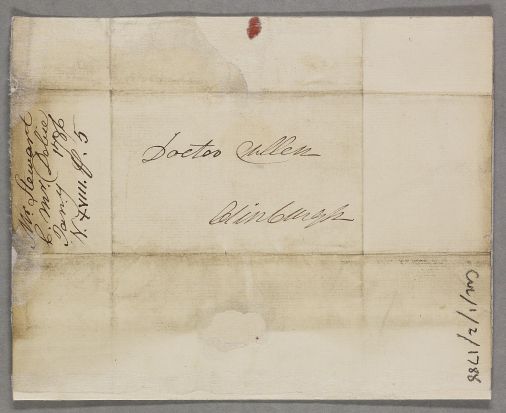 Doctor Cullen
Edinburgh
Mr. Steuart
C. Mr
Jany 1786
N. XVIII. f. 5
Cul/1/2/1788